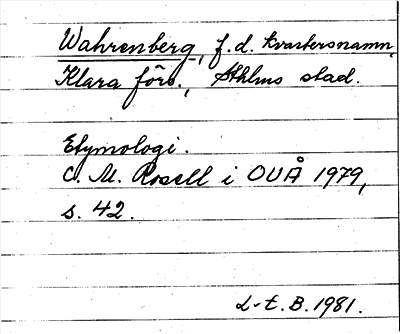 Wahrenberg, f.d. kvartersnamn,
Klara förs., Sthlms stad.
Etymologi.
C. M. Rosell i OUÅ 1979,
s. 42.
L-t. B. 1981.